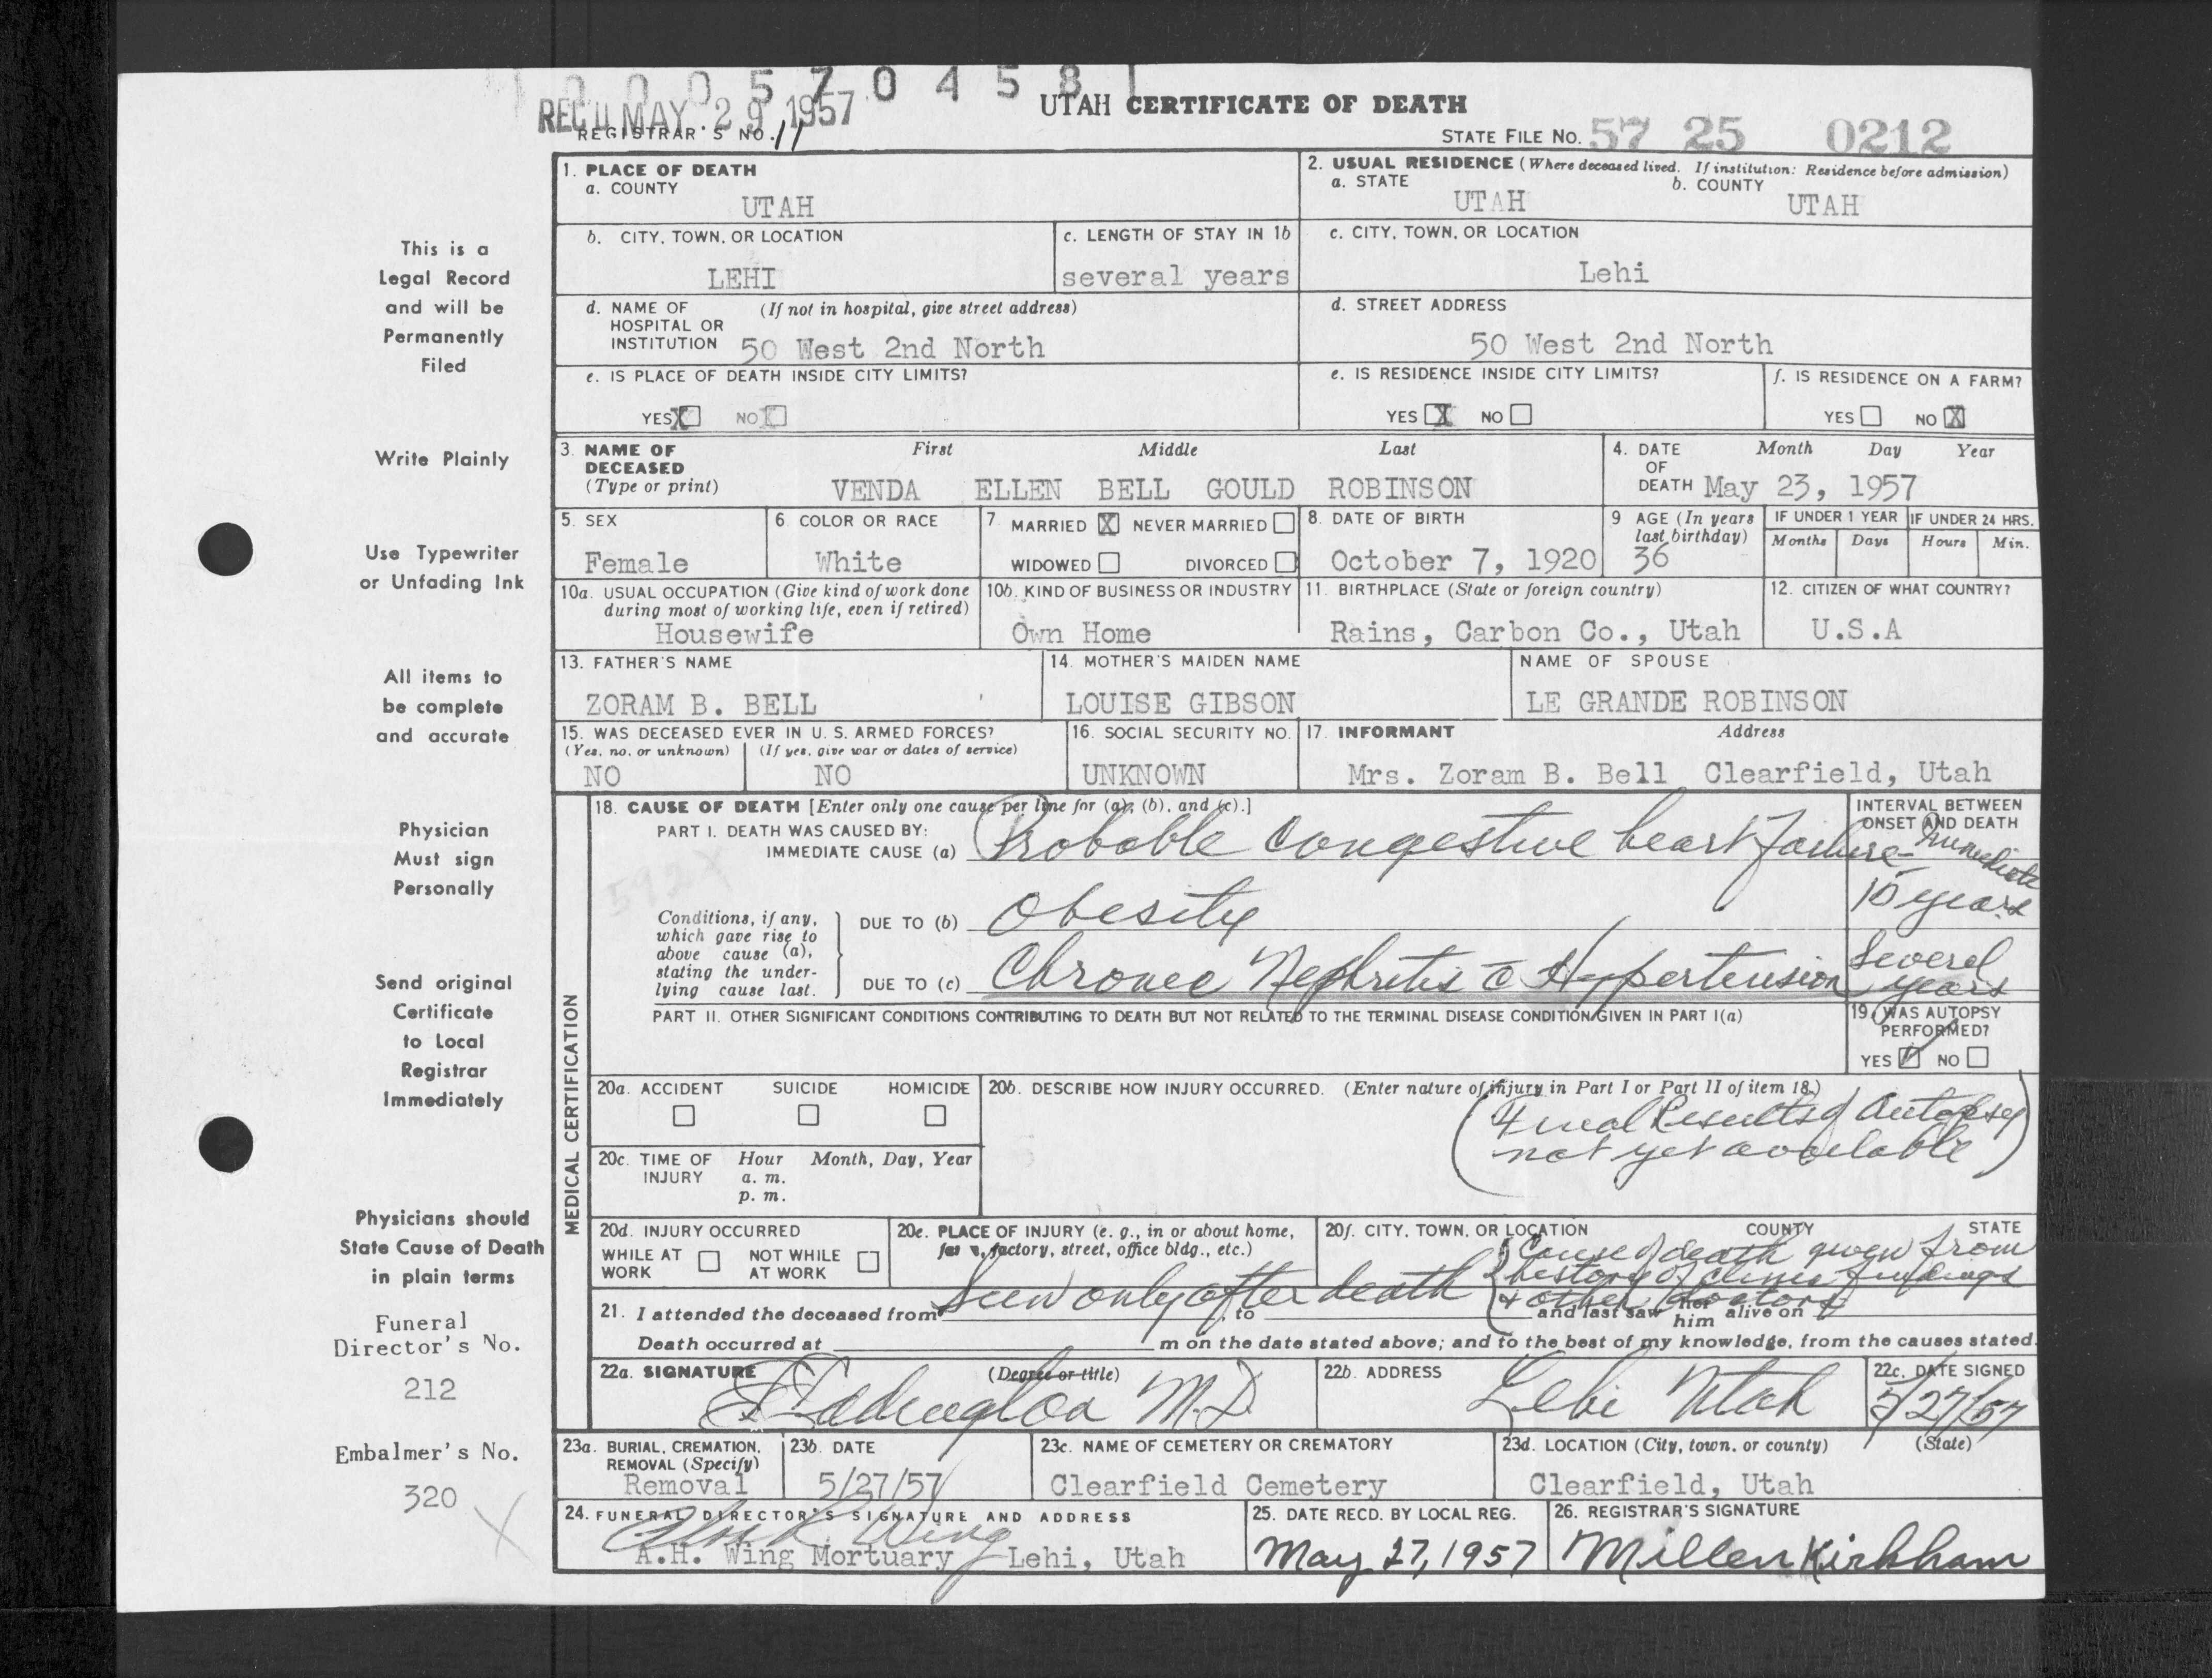 1 0 0 0 5 7 0 4 5 8 1
REC'D MAY 29 1957
UTAH CERTIFICATE OF DEATH
REGISTRAR'S NO. 11
STATE FILE NO. 57 25 0212
1. PLACE OF DEATH
a. COUNTY
UTAH
2. USUAL RESIDENCE (Where deceased lived. If institution: Residence before admission)
a. STATE b. COUNTY
UTAH UTAH
b. CITY, TOWN, OR LOCATION
LEHI
c. LENGTH OF STAY IN 1b
several years
c. CITY, TOWN, OR LOCATION
Lehi
d. NAME OF (If not in hospital, give street address)
HOSPITAL OR
INSTITUTION 50 West 2nd North
d. STREET ADDRESS
50 West 2nd North
e. IS PLACE OF DEATH INSIDE CITY LIMITS?
YES X NO X
e. IS RESIDENCE INSIDE CITY LIMITS?
YES X NO
f. IS RESIDENCE ON A FARM?
YES NO X
3. NAME OF First Middle Last
DECEASED
(Type or print) VENDA ELLEN BELL GOULD ROBINSON
4. DATE Month Day Year
OF
DEATH May 23, 1957
5. SEX
Female
6. COLOR OR RACE
White
7 MARRIED X NEVER MARRIED
WIDOWED DIVORCED
8. DATE OF BIRTH
October 7, 1920
9 AGE (In years
last birthday)
36
IF UNDER 1 YEAR IF UNDER 24 HRS.
Months Days Hours Min.
10a. USUAL OCCUPATION (Give kind of work done
during most of working life, even if retired)
Housewife
10b. KIND OF BUSINESS OR INDUSTRY
Own Home
11. BIRTHPLACE (State or foreign country)
Rains, Carbon Co., Utah
12. CITIZEN OF WHAT COUNTRY?
U.S.A
13. FATHER'S NAME
ZORAM B. BELL
14. MOTHER'S MAIDEN NAME
LOUISE GIBSON
NAME OF SPOUSE
LE GRANDE ROBINSON
15. WAS DECEASED EVER IN U. S. ARMED FORCES?
(Yes, no, or unknown) (If yes, give war or dates of service)
NO NO
16. SOCIAL SECURITY NO.
UNKNOWN
17. INFORMANT Address
Mrs. Zoram B. Bell Clearfield, Utah
MEDICAL CERTIFICATION
18. CAUSE OF DEATH [Enter only one cause per line for (a), (b), and (c).]
PART I. DEATH WAS CAUSED BY:
IMMEDIATE CAUSE (a) Probable Congestive heart Failure -
592X
INTERVAL BETWEEN
ONSET AND DEATH
Immediate
Conditions, if any,
which gave rise to
above cause (a),
stating the under-
lying cause last.
DUE TO (b) Obesity
15 years
DUE TO (c) Chronic Nephritis c̄ Hypertension
Several
years
PART II. OTHER SIGNIFICANT CONDITIONS CONTRIBUTING TO DEATH BUT NOT RELATED TO THE TERMINAL DISEASE CONDITION GIVEN IN PART I(a)
19. WAS AUTOPSY
PERFORMED?
YES ✓ NO
20a. ACCIDENT SUICIDE HOMICIDE
20b. DESCRIBE HOW INJURY OCCURRED. (Enter nature of injury in Part I or Part II of item 18.)
(Final Results of Autopsy
not yet available)
20c. TIME OF Hour Month, Day, Year
INJURY a. m.
p. m.
20d. INJURY OCCURRED
WHILE AT NOT WHILE
WORK AT WORK
20e. PLACE OF INJURY (e. g., in or about home,
farm, factory, street, office bldg., etc.)
20f. CITY, TOWN, OR LOCATION COUNTY STATE
Cause of death given from
history of clinic findings
& other doctors
21. I attended the deceased from Seen only after death to and last saw her him alive on
Death occurred at m on the date stated above; and to the best of my knowledge, from the causes stated.
22a. SIGNATURE (Degree or title)
M.D.
22b. ADDRESS
Lehi Utah
22c. DATE SIGNED
5/27/57
23a. BURIAL, CREMATION,
REMOVAL (Specify)
Removal
23b. DATE
5/27/57
23c. NAME OF CEMETERY OR CREMATORY
Clearfield Cemetery
23d. LOCATION (City, town, or county) (State)
Clearfield, Utah
24. FUNERAL DIRECTOR'S SIGNATURE AND ADDRESS
Wing
A.H. Wing Mortuary Lehi, Utah
25. DATE RECD. BY LOCAL REG.
May 27, 1957
26. REGISTRAR'S SIGNATURE
Millen Kirkham
This is a
Legal Record
and will be
Permanently
Filed
Write Plainly
Use Typewriter
or Unfading Ink
All items to
be complete
and accurate
Physician
Must sign
Personally
Send original
Certificate
to Local
Registrar
Immediately
Physicians should
State Cause of Death
in plain terms
Funeral
Director's No.
212
Embalmer's No.
320
X